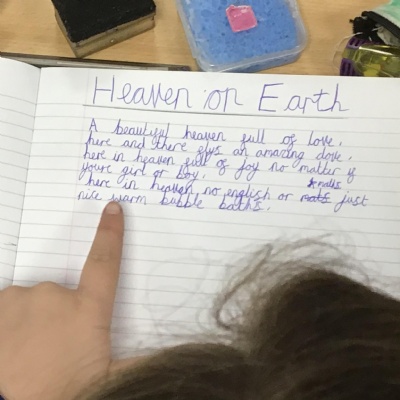 Heaven on Earth
A beautiful heaven full of love,
here and there flys an amazing dove,
here in heaven full of joy no matter if
youre girl or boy.
*maths
here in heaven no english or maths just
nice warm bubble baths.